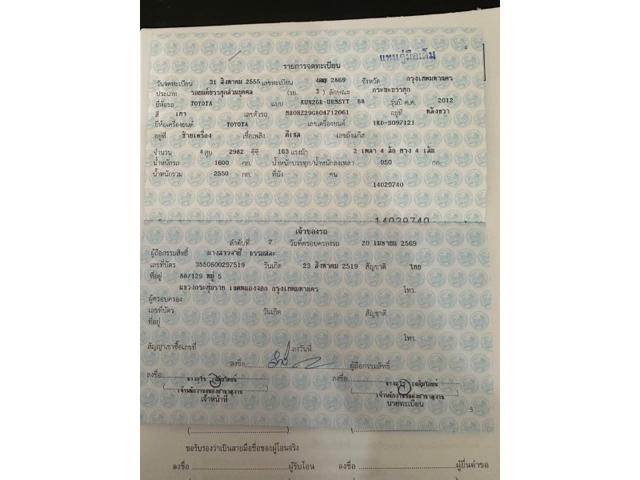 แทนคู่มือเดิม
รายการจดทะเบียน
วันจดทะเบียน 31 สิงหาคม 2555 เลขทะเบียน 2869 จังหวัด กรุงเทพมหานคร
ประเภท รถยนต์บรรทุกส่วนบุคคล (รย. 3 ) ลักษณะ กระบะบรรทุก
ยี่ห้อรถ TOYOTA แบบ รุ่นปี ค.ศ. 2012
สี เทา เลขตัวรถ อยู่ที่
ยี่ห้อเครื่องยนต์ TOYOTA เลขเครื่องยนต์ 1KD-5097121
อยู่ที่ เชื้อเพลิง ดีเซล เลขถังแก๊ส
จำนวน 4 สูบ 2982 ซีซี 163 แรงม้า 2 เพลา 4 ล้อ ยาง 4 เส้น
น้ำหนักรถ 1600 กก. น้ำหนักบรรทุก/น้ำหนักลงเพลา 950 กก.
น้ำหนักรวม 2550 กก. ที่นั่ง คน
14029740
14029740
เจ้าของรถ
ลำดับที่ 7 วันที่ครอบครองรถ 20 เมษายน 2569
ผู้ถือกรรมสิทธิ์
เลขที่บัตร 3550600297519 วันเกิด 23 สิงหาคม 2519 สัญชาติ ไทย
ที่อยู่ 88/129 หมู่ 5
แขวงกระทุ่มราย เขตหนองจอก กรุงเทพมหานคร โทร.
ผู้ครอบครอง
เลขที่บัตร วันเกิด สัญชาติ
ที่อยู่
โทร.
สัญญาเช่าซื้อเลขที่ ลงวันที่
ลงชื่อ ผู้ถือกรรมสิทธิ์
ลงชื่อ ลงชื่อ
เจ้าหน้าที่ นายทะเบียน
5
ขอรับรองว่าเป็นลายมือชื่อของผู้โอนจริง
ลงชื่อ ผู้รับโอน ลงชื่อ ผู้ยื่นคำขอ